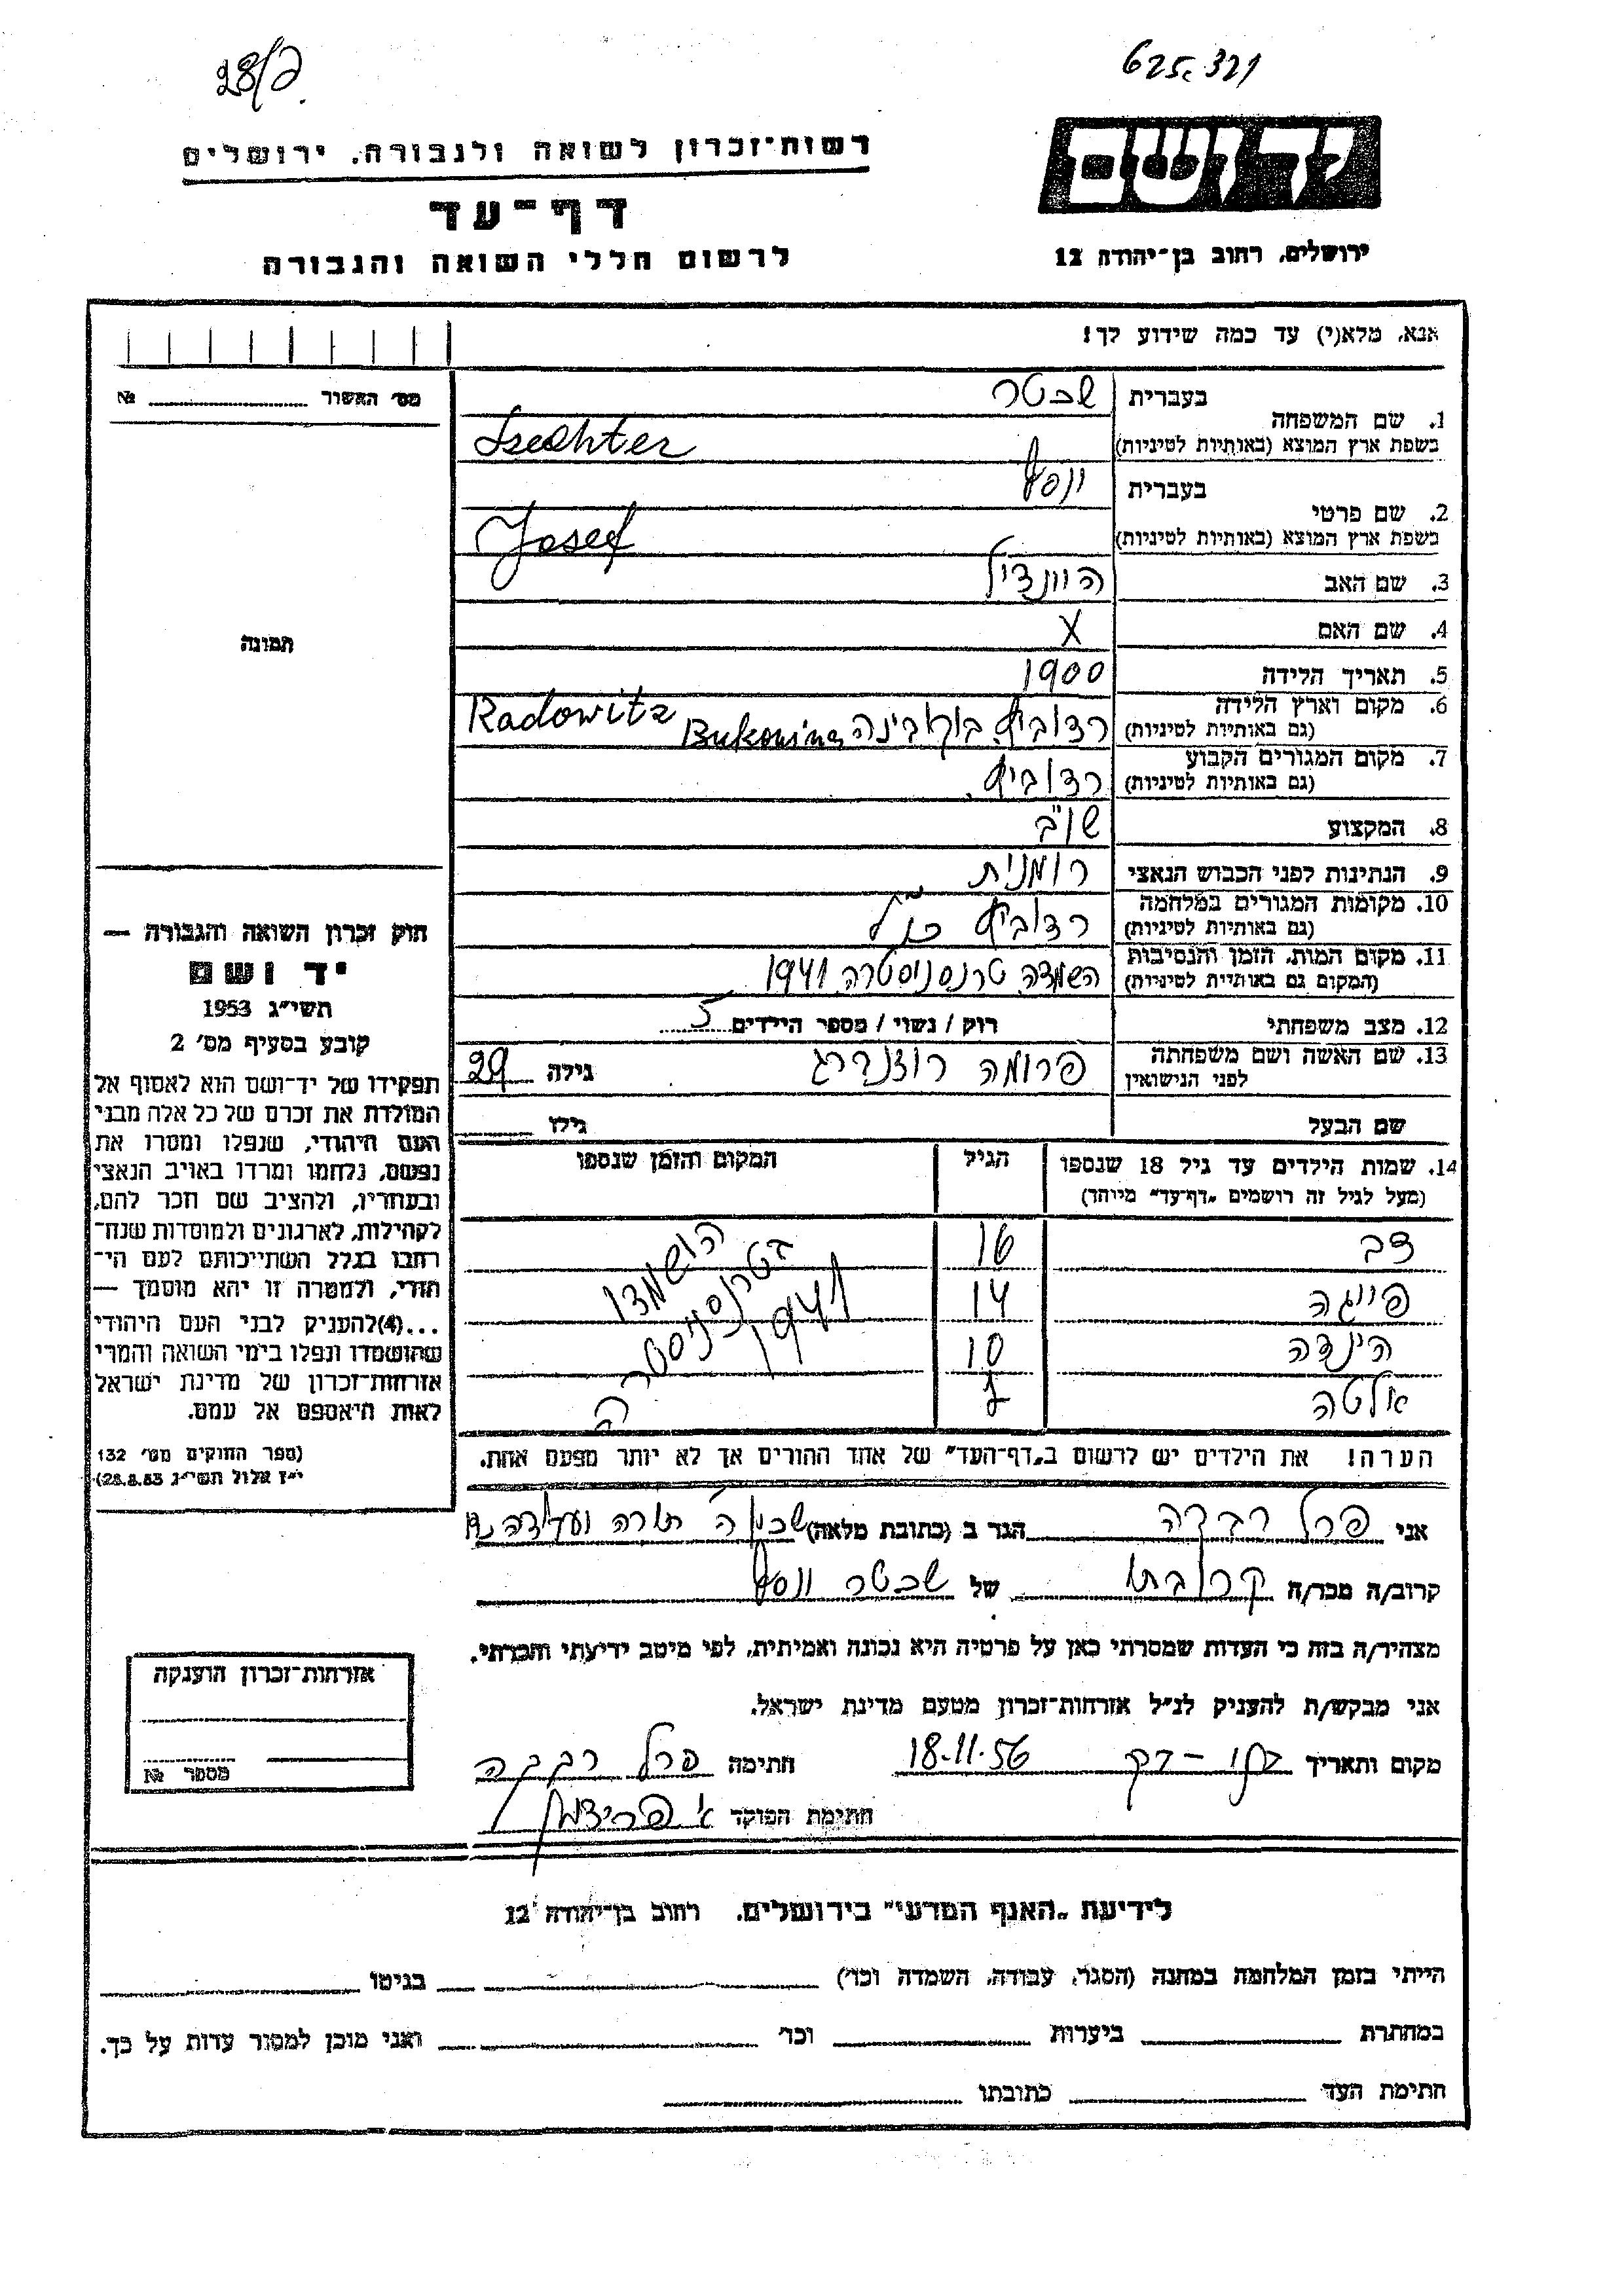 28/ם
625.321
רשות־זכרון לשואה ולגבורה, ירושלים
יד ושם
דף־עד
לרשום חללי השואה והגבורה
ירושלים, רחוב בן־יהודה 12
אנא, מלא(י) עד כמה שידוע לך!
מס׳ האשור № 
תמונה
1. שם המשפחה
בעברית שכטר
בשפת ארץ המוצא (באותיות לטיניות) Szechter
2. שם פרטי
בעברית יוסף
בשפת ארץ המוצא (באותיות לטיניות) Josef
3. שם האב
4. שם האם X
5. תאריך הלידה 1900
6. מקום וארץ הלידה (גם באותיות לטיניות) רדוביץ בוקובינה Bukowina Radowitz
7. מקום המגורים הקבוע (גם באותיות לטיניות) רדוביץ
8. המקצוע שו"ב
9. הנתינות לפני הכבוש הנאצי רומנית
10. מקומות המגורים במלחמה (גם באותיות לטיניות) רדוביץ כנ"ל
11. מקום המות, הזמן והנסיבות (המקום גם באותיות לטיניות) השמדה טרנסניסטרה 1941
12. מצב משפחתי רוק / נשוי / מספר הילדים 5
13. שם האשה ושם משפחתה לפני הנישואין פרומה רוזנברג גילה 29
שם הבעל גילו
14. שמות הילדים עד גיל 18 שנספו הגיל המקום והזמן שנספו
(מעל לגיל זה רושמים „דף־עד" מיוחד)
דב 16 הושמדו
פייגה 14 בטרנסניסטרה
הינדה 10 1941
אלטה 7
הערה! את הילדים יש לרשום ב„דף־העד" של אחד ההורים אך לא יותר מפעם אחת.
חוק זכרון השואה והגבורה —
יד ושם
תשי״ג 1953
קובע בסעיף מס׳ 2
תפקידו של יד־ושם הוא לאסוף אל
המולדת את זכרם של כל אלה מבני
העם היהודי, שנפלו ומסרו את
נפשם, נלחמו ומרדו באויב הנאצי
ובעוזריו, ולהציב שם וזכר להם,
לקהילות, לארגונים ולמוסדות שנח־
רבו בגלל השתייכותם לעם הי־
הודי, ולמטרה זו יהא מוסמך —
...(4) להעניק לבני העם היהודי
שהושמדו ונפלו בימי השואה והמרי
אזרחות־זכרון של מדינת ישראל
לאות היאספם אל עמם.
(ספר החוקים מס׳ 132
י״ז אלול תשי״ג 28.8.53)
אני פרל רבקה הגר ב (כתובת מלאה) שכונ' תורה ועבודה
קרוב/ה מכר/ה קרובתו של שכטר יוסף
מצהיר/ה בזה כי העדות שמסרתי כאן על פרטיה היא נכונה ואמיתית, לפי מיטב ידיעתי והכרתי.
אני מבקש/ת להעניק לנ״ל אזרחות־זכרון מטעם מדינת ישראל.
מקום ותאריך בני־ברק 18.11.56 חתימה פרל רבקה
חתימת הפוקד א' פרידמן
אזרחות־זכרון הוענקה
מספר №
לידיעת „האגף המדעי" בירושלים, רחוב בן־יהודה 12
הייתי בזמן המלחמה במחנה (הסגר, עבודה, השמדה וכו׳) בגיטו
במחתרת ביערות וכו׳ ואני מוכן למסור עדות על כך.
חתימת העד כתובתו